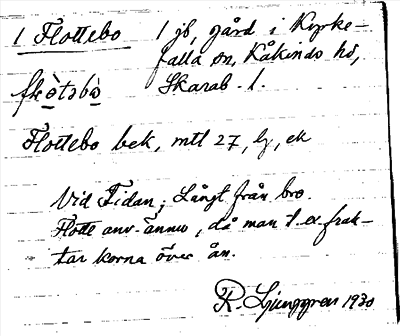 1 Flottebo 1 jb, gård i Kyrke-
falla sn, Kåkinds hd,
Skarab. l.
Flottebo bek, mtl 27, lj, ek
Vid Tidan; Långt från bro.
Flotte anv. ännu, då man t. ex. frak-
tar korna över ån.
R Ljunggren 1930